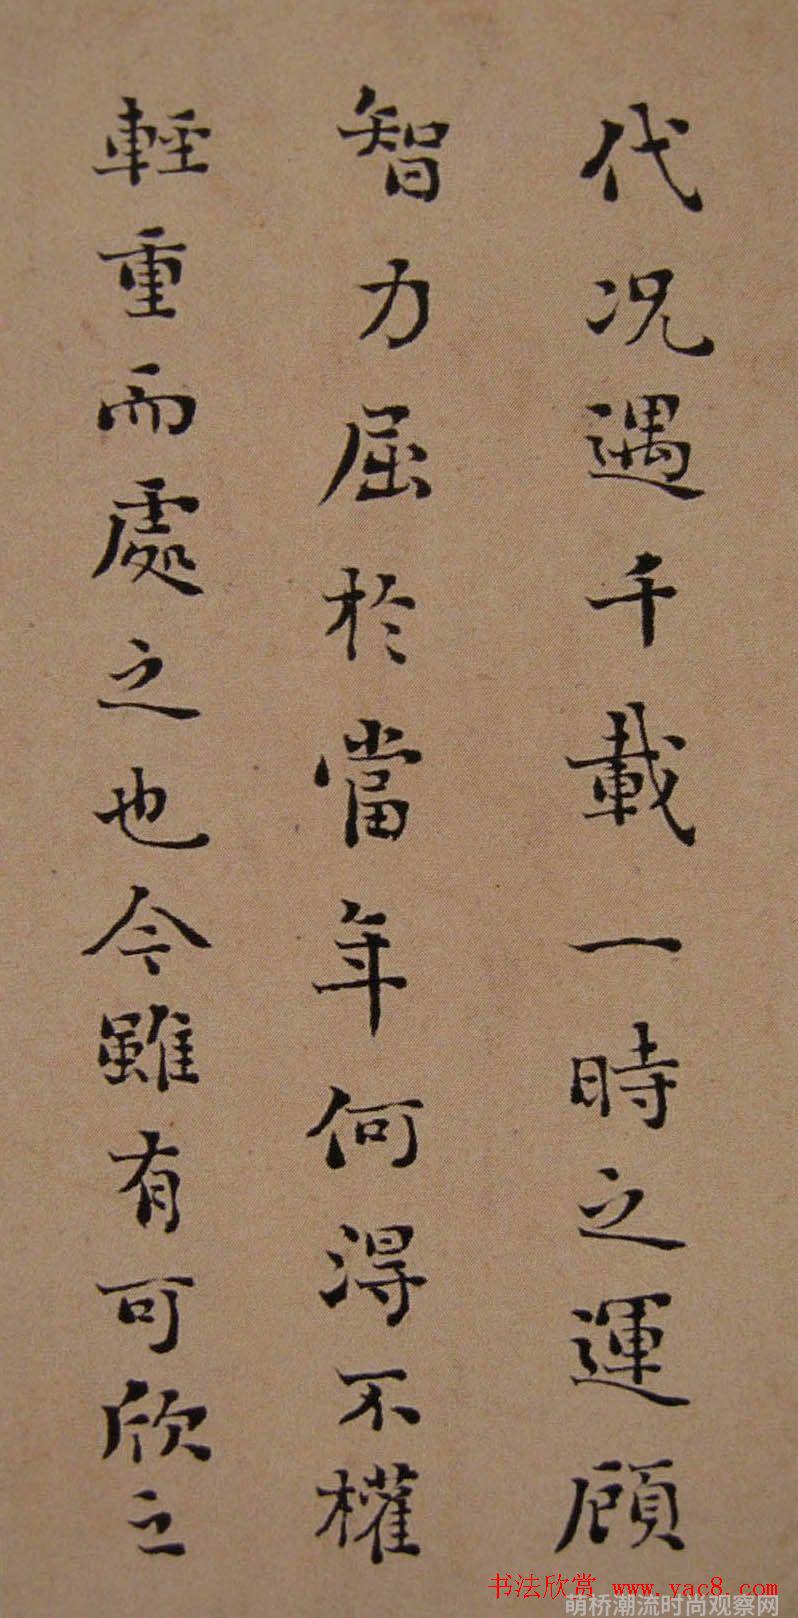 代况遇千載一時之運顧
智力屈於當年何得不權
輕重而處之也今雖有可欣之
书法欣赏 www.yac8.com
萌桥潮流时尚观察网